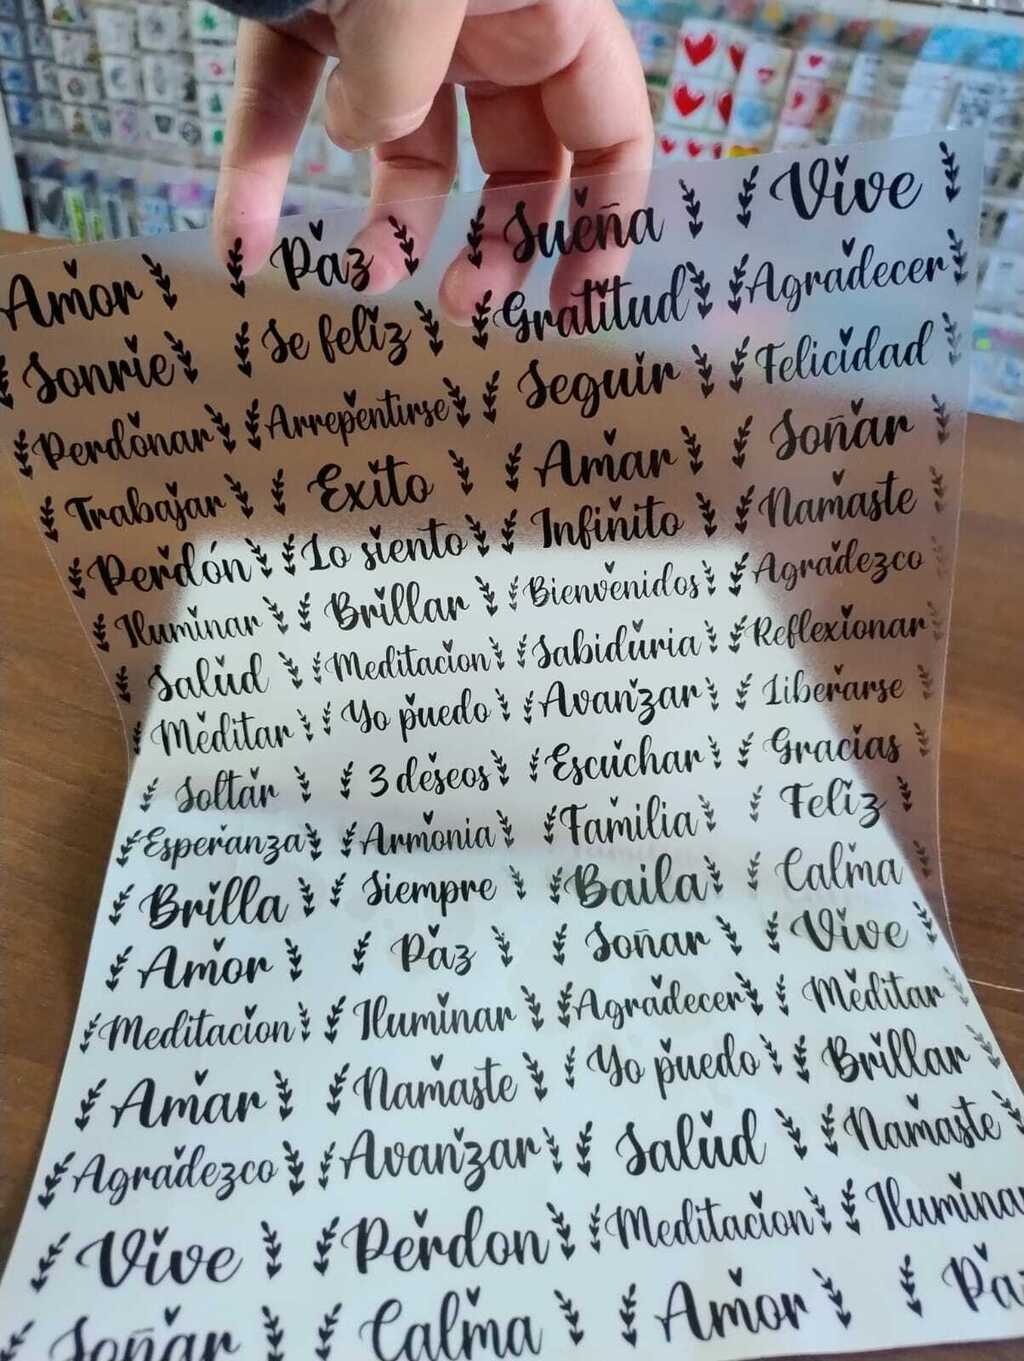 Amor Paz Sueña Vive
Sonrie Se feliz Gratitud Agradecer
Perdonar Arrepentirse Seguir Felicidad
Trabajar Exito Amar Soñar
Perdón Lo siento Infinito Namaste
Iluminar Brillar Bienvenidos Agradezco
Salud Meditacion Sabiduria Reflexionar
Meditar Yo puedo Avanzar Liberarse
Soltar 3 deseos Escuchar Gracias
Esperanza Armonia Familia Feliz
Brilla Siempre Baila Calma
Amor Paz Soñar Vive
Meditacion Iluminar Agradecer Meditar
Amar Namaste Yo puedo Brillar
Agradezco Avanzar Salud Namaste
Vive Perdon Meditacion Iluminar
Soñar Calma Amor Paz